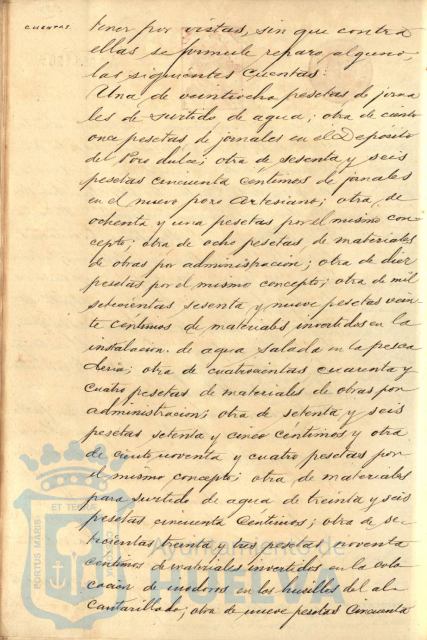 CUENTAS.
tener por vistas, sin que contra
ellas se formule reparo alguno,
las siguientes cuentas:
Una de veintiocho pesetas de jorna
les de surtido de agua; otra de ciento
once pesetas de jornales en el Deposito
del Pozo dulce; otra de sesenta y seis
pesetas cincuenta céntimos de jornales
en el nuevo pozo Artesiano; otra, de
ochenta y una pesetas por el mismo con
cepto; otra de ocho pesetas de materiales
de obras por administracion; otra de diez
pesetas por el mismo concepto; otra de mil
setecientas sesenta y nueve pesetas vein
te céntimos de materiales invertidos en la
instalacion de agua salada en la pesca
deria; otra de cuatrocientas cuarenta y
cuatro pesetas de materiales de obras por
administracion; otra de setenta y seis
pesetas setenta y cinco céntimos y otra
de ciento noventa y cuatro pesetas por
el mismo concepto; otra de materiales
para surtido de agua de treinta y seis
pesetas, cincuenta céntimos; otra de se
tecientas treinta y tres pesetas noventa
céntimos de materiales invertidos en la colo
cacion de inodoros en los husillos del al
cantarillado; otra de nueve pesetas cincuenta
PORTUS MARIS
ET TERRÆ
Ayuntamiento de
HUELVA